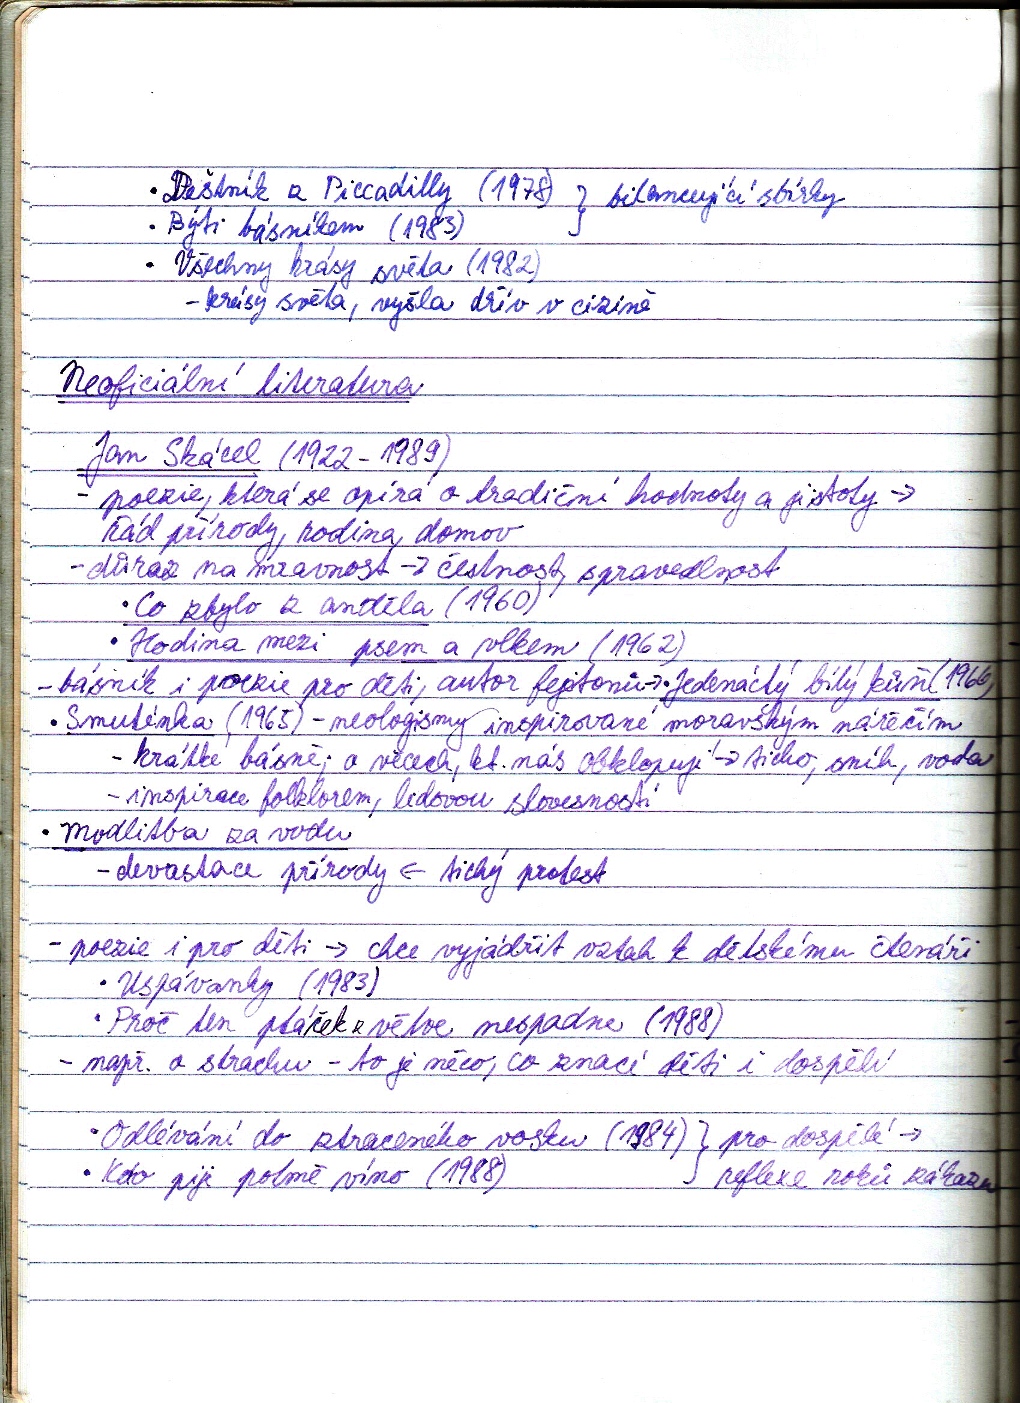 • Deštník z Piccadilly (1978) } bilancující sbírky
• Býti básníkem (1983)
• Všechny krásy světa (1982)
- krásy světa, vyšla dřív v cizině
Neoficiální literatura
Jan Skácel (1922 - 1989)
- poezie, která se opírá o tradiční hodnoty a jistoty →
řád přírody, rodina, domov
- důraz na mravnost → čestnost, spravedlnost
• Co zbylo z anděla (1960)
• Hodina mezi psem a vlkem (1962)
- básník i poezie pro děti, autor fejtonů → • Jedenáctý bílý kůň (1966)
• Smuténka (1965) - neologismy inspirované moravským nářečím
- krátké básně; o věcech, kt. nás obklopují → ticho, sníh, voda
- inspirace folklorem, lidovou slovesností
• Modlitba za vodu
- devastace přírody ← tichý protest
- poezie i pro děti → chce vyjádřit vztah k dětskému čtenáři
• Uspávanky (1983)
• Proč ten ptáček z větve nespadne (1988)
- např. o strachu - to je něco, co znací děti i dospělí
• Odlévání do ztraceného vosku (1984) } pro dospělé →
• Kdo pije potmě víno (1988) reflexe roků zákazu